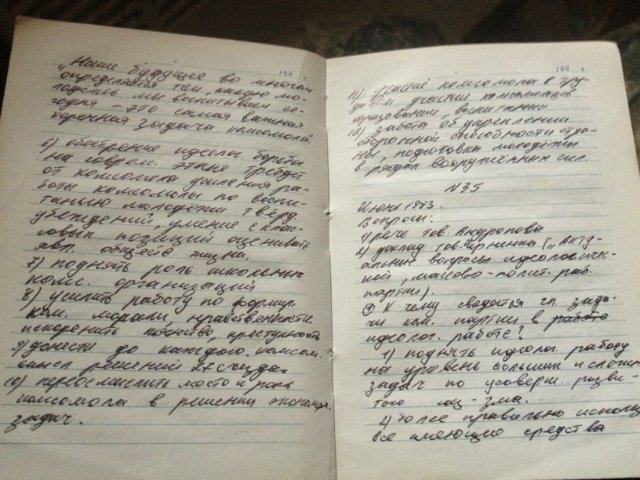 198 г.
„Наше будущее во многом
определяется тем, какую мо-
лодежь мы воспитываем се-
годня – это самая важная
задача комсомола".
6) обострение идеолог. борьбы
на соврем. этапе требует
от комсомола усиления ра-
боты комсомола по воспи-
танию молодежи тверд.
убеждений, умение с клас-
совых позиций оценивать
явл. обществ. жизни.
7) поднять роль школьных
комс. организаций
8) усилить работу по формир.
ком. морали, нравственности.
искоренить пьянство, преступность
9) донести до каждого комсом.
смысл решений съезда.
10) переосмыслить место и роль
комсомола в решении эконом.
задач.
198 г.
11) комсомола в тру-
участии комсомольцев
образовании, воспитании
12) забота об укреплении
оборонной способности стра-
ны, подготовка молодежи
в рядах вооружённых сил.
N 35
Июнь 1983.
Вопросы:
1) речь тов. Андропова
2) доклад тов. Черненко („Акту-
альные вопросы идеологичес-
кой, массово-полит. раб.
партии).
К чему сводятся гл. зада-
чи ком. партии в работе
идеолог. работе?
1) поднять идеолог. работу
на уровень больших и сложн
задач по усоверш. разви-
того соц-зма.
2) более правильно использ
все имеющие средства